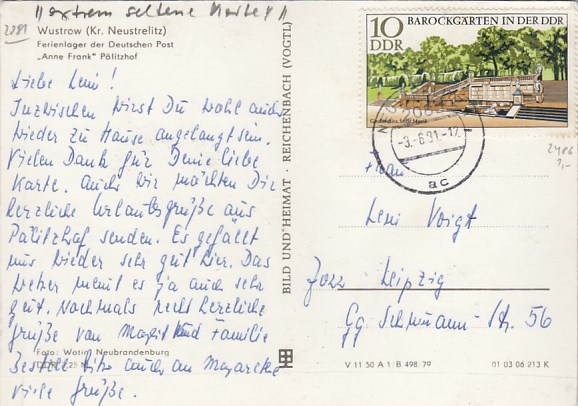 "extrem seltene Karte"!!
2081
Wustrow (Kr. Neustrelitz)
Ferienlager der Deutschen Post
„Anne Frank" Pälitzhof
Liebe Leni!
Inzwischen wirst Du wohl auch
wieder zu Hause angelangt sein.
Vielen Dank für Deine liebe
Karte. Auch wir möchten Dir
herzliche Urlaubsgrüße aus
Pälitzhof senden. Es gefällt
uns wieder sehr gut hier. Das
Wetter meint es ja auch sehr
gut. Nochmals recht herzliche
Grüße von Margit und Familie
Bestelle bitte auch an
viele Grüße.
Foto: Wotin, Neubrandenburg
BILD UND HEIMAT · REICHENBACH (VOGTL)
10
DDR
BAROCKGÄRTEN IN DER DDR
-3.-6.81-12
ac
2486
Frau
Leni Voigt
7022 Leipzig
Gg. Schumann-Str. 56
V 11 50 A 1 B 498 79
01 03 06 213 K